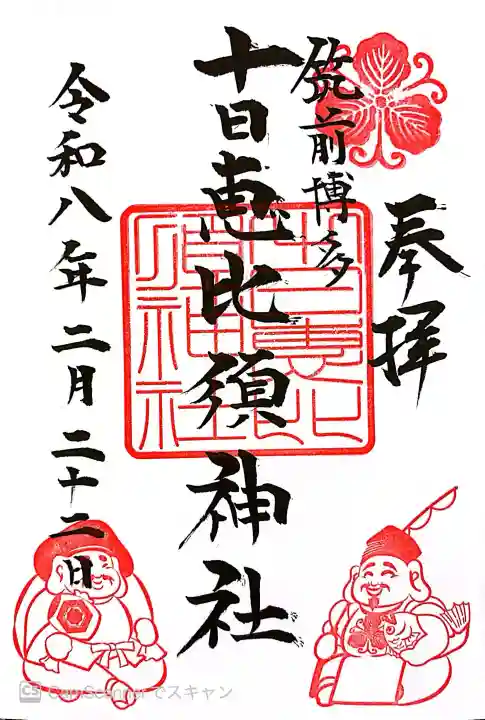 奉拝
筑前博多
十日恵比須神社
十日恵比須神社
令和八年二月二十二日
CS CamScannerでスキャン